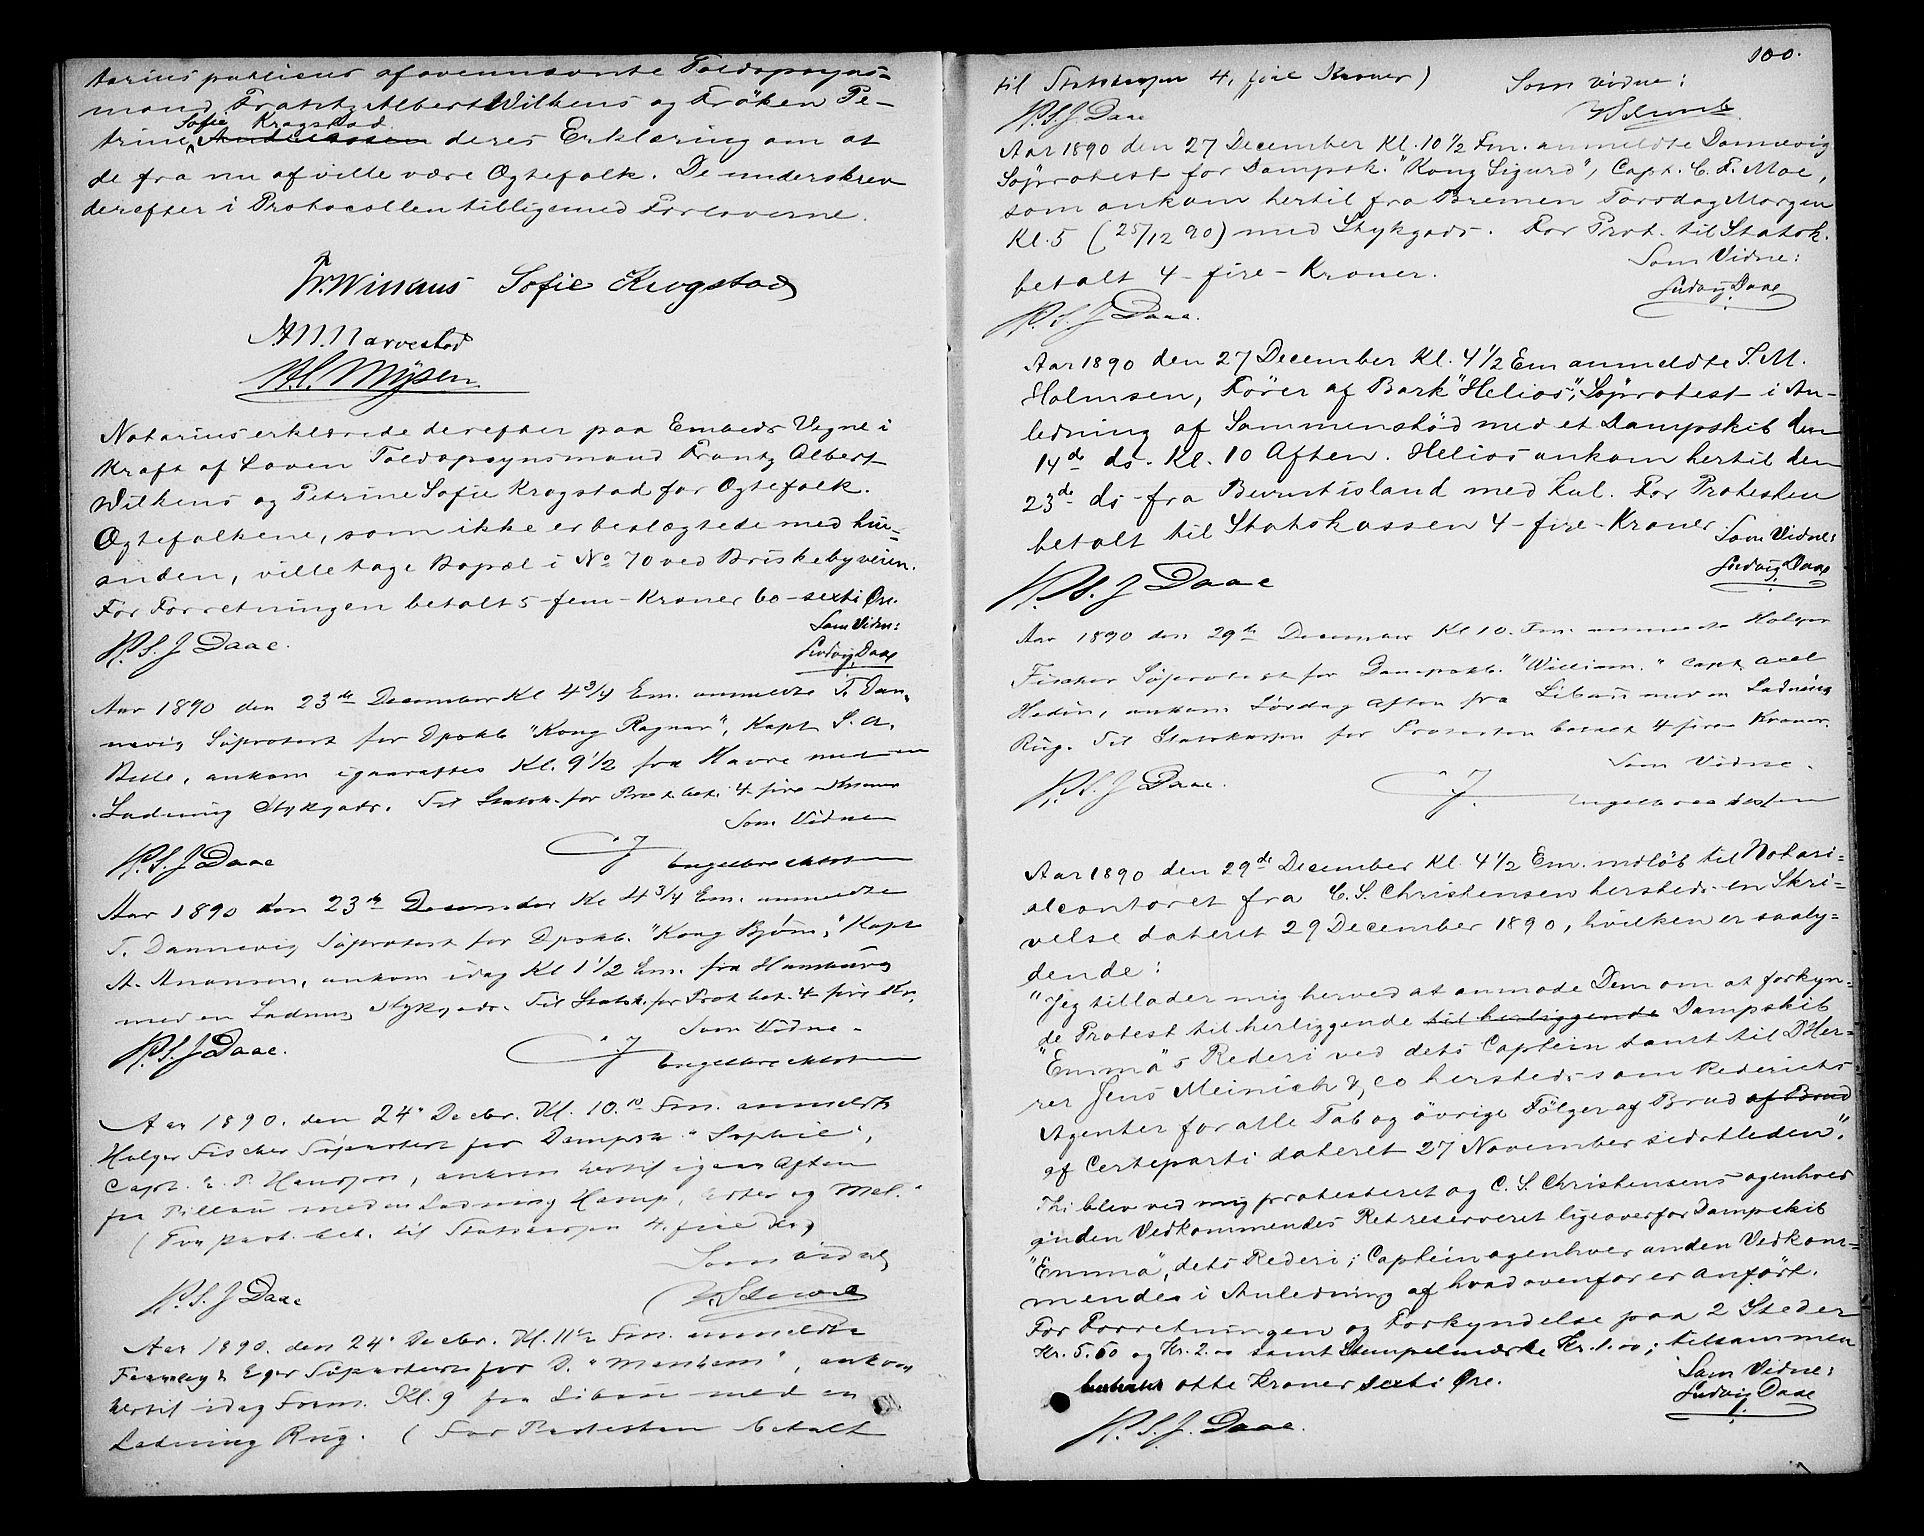 tarius publicus afovennævnte Toldopsyns=
mand Frantz Albert Wilkens og Frøken Pe-
Sofie Krogstad
trine Anderssen deres Erklæring om at
de fra nu af ville være Ægtefolk. De underskrev
derefter i Protocollen tilligemed Forloverne.
Fr. Wilkens Sofie Krogstad
A. M. Narvestad
H. C. Mysen
Notarius erklærede derefter paa Embeds Vegne i
Kraft af Loven Toldopsynsmand Frantz Albert
Wilkens og Petrine Sofie Krogstad for Ægtefolk.
Ægtefolkene, som ikke er beslægtede med hin=
anden, ville tage Bopæl i No 70 ved Briskebyveien.
For Forretningen betalt 5-fem-Kroner 60-sexti Øre.
Som Vidne:
H. S. J Daae. Ludvig Daae
Aar 1890 den 23de December Kl 4 3/4 Em. anmeldte T. Dan-
nevig Søprotest for Dpskb "Kong Ragnar", Kapt S. A.
ankom igaaraftes Kl. 9 1/2 fra Havre med en
Ladning Stykgods. Til Statsk. for Prot. bet. 4-fire Kroner
Som Vidne
H. S. J Daae Engelbrechtsen
Aar 1890 den 23de December Kl 4 3/4 Em. anmeldte
T. Dannevig Søprotest for Dpskb. "Kong Bjørn," Kapt
A. ankom idag Kl 1 1/2 Em. fra Hamburg
med en Ladning Stykgods. Til Statsk. for Prot bet. 4-fire Kr.
Som Vidne-
H. S. J Daae. Engelbrechtsen
Aar 1890. den 24. Decbr. Kl. 10.10 Fm. anmeldte
Holger Fischer Søprotest for Dampsk. "Sophie",
Capt. ankom hertil igaar Aften
fra Pillau med en Ladning Hamp, Erter og Mel.
(For Prot. bet. til Statskassen 4, fire Kr,)
Som Vidne
H. S. J Daae
Aar 1890. den 24. Decbr. Kl. 11 1/2 Fm. anmeldte
Fearnley & Eger Søprotest for D. ankom
hertil idag Form. Kl. 9 fra Libau med en
Ladning Rug. (For Protesten betalt
100.
til Statskassen 4, fire Kroner) Som Vidne:
H. S. J. Daae
Aar 1890 den 27 December Kl. 10 1/2 Fm. anmeldte Dannevig
Søprotest for Dampsk. "Kong Sigurd", Capt. C. F. Moe,
som ankom hertil fra Bremen Torsdag Morgen
Kl. 5 (25/12 90) med Stykgods. For Prot. til Statsk.
betalt 4-fire-Kroner. Som Vidne:
H. S. J Daae. Ludvig Daae
Aar 1890 den 27 December Kl. 4 1/2 Em anmeldte T. M.
Holmsen, Fører af Bark "Helios", Søprotest i An-
ledning af Sammenstød med et Dampskib den
14de ds. Kl. 10 Aften. Helios ankom hertil den
23de ds fra Burntisland med Kul. For Protesten
betalt til Statskassen 4-fire-Kroner Som Vidne:
H. S. J Daae Ludvig Daae
Aar 1890 den 29de December Kl 10. Fm. anmeldte Holger
Fischer Søprotest for Dampskb. "William." Capt. Axel
Hedin, ankom Lørdag Aften fra Libau med en Ladning
Rug. Til Statskassen for Protesten betalt 4-fire Kroner.
Som Vidne.
H. S. J Daae. Engelbrechtsen
Aar 1890 den 29de December Kl. 4 1/2 Em. indløb til Notari=
alcontoret fra C. S. Christensen hersteds en Skri=
velse dateret 29 December 1890, hvilken er saaly=
dende:
"Jeg tillader mig herved at anmode Dem om at forkyn=
de Protest til herliggende til herliggende Dampskib
"Emma"s Rederi ved dets Captein samt til DHer=
rer Jens Meinich & Co hersteds som Rederiets
Agenter for alle Tab og øvrige Følger af Brud af Brud
af Certeparti dateret 27 November sidstleden."
Thi blev ved mig protesteret og C. S. Christensens og enhver
anden Vedkommendes Ret reserveret ligeoverfor Dampskib
"Emma", dets Rederi, Captein og enhver anden Vedkom=
mende i Anledning af hvad ovenfor er anført.
For Forretningen og Forkyndelse paa 2 Steder
Kr. 5.60 og Kr. 2.00 samt Stempelmærke Kr. 1.00; tilsammen
otte Kroner sexti Øre. Som Vidne:
Ludvig Daae
H. S. J. Daae.